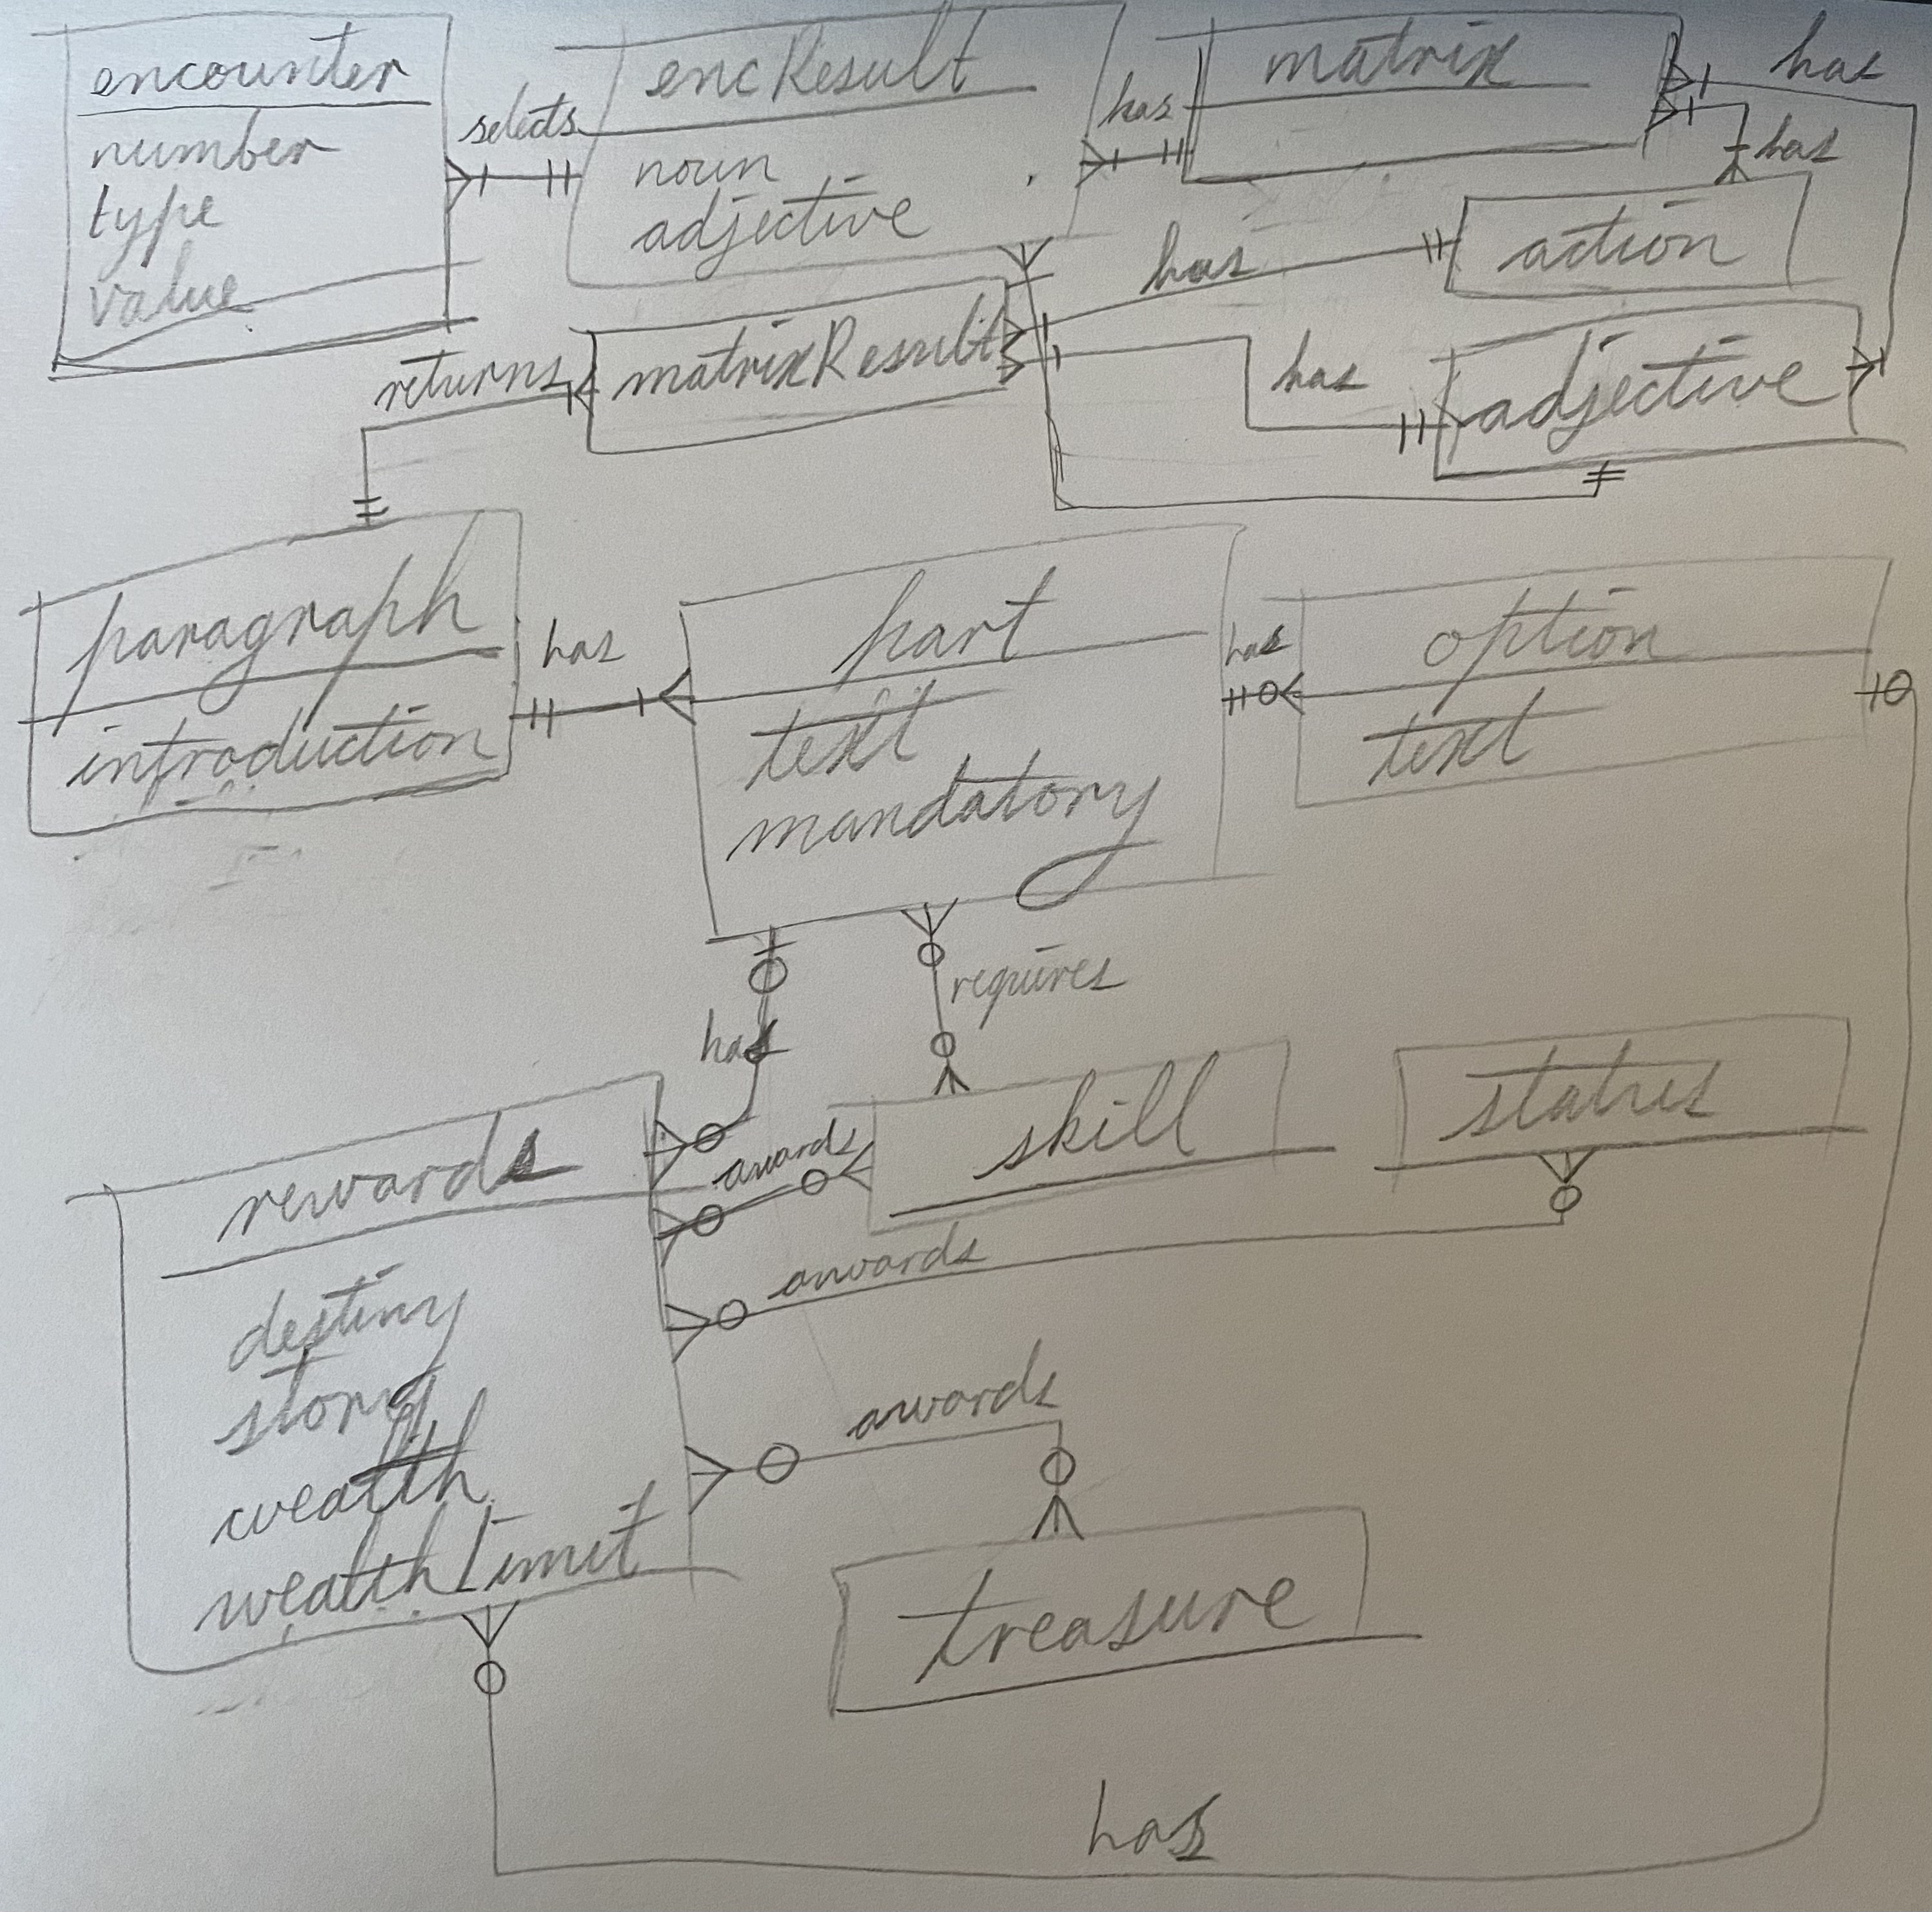 encounter
number
type
value
selects
encResult
noun
adjective
has
matrix
has
has
action
has
matrixResult
returns
has
adjective
paragraph
introduction
has
part
text
mandatory
has
option
text
has
requires
rewards
destiny
story
wealth
wealthLimit
awards
skill
status
awards
awards
treasure
has